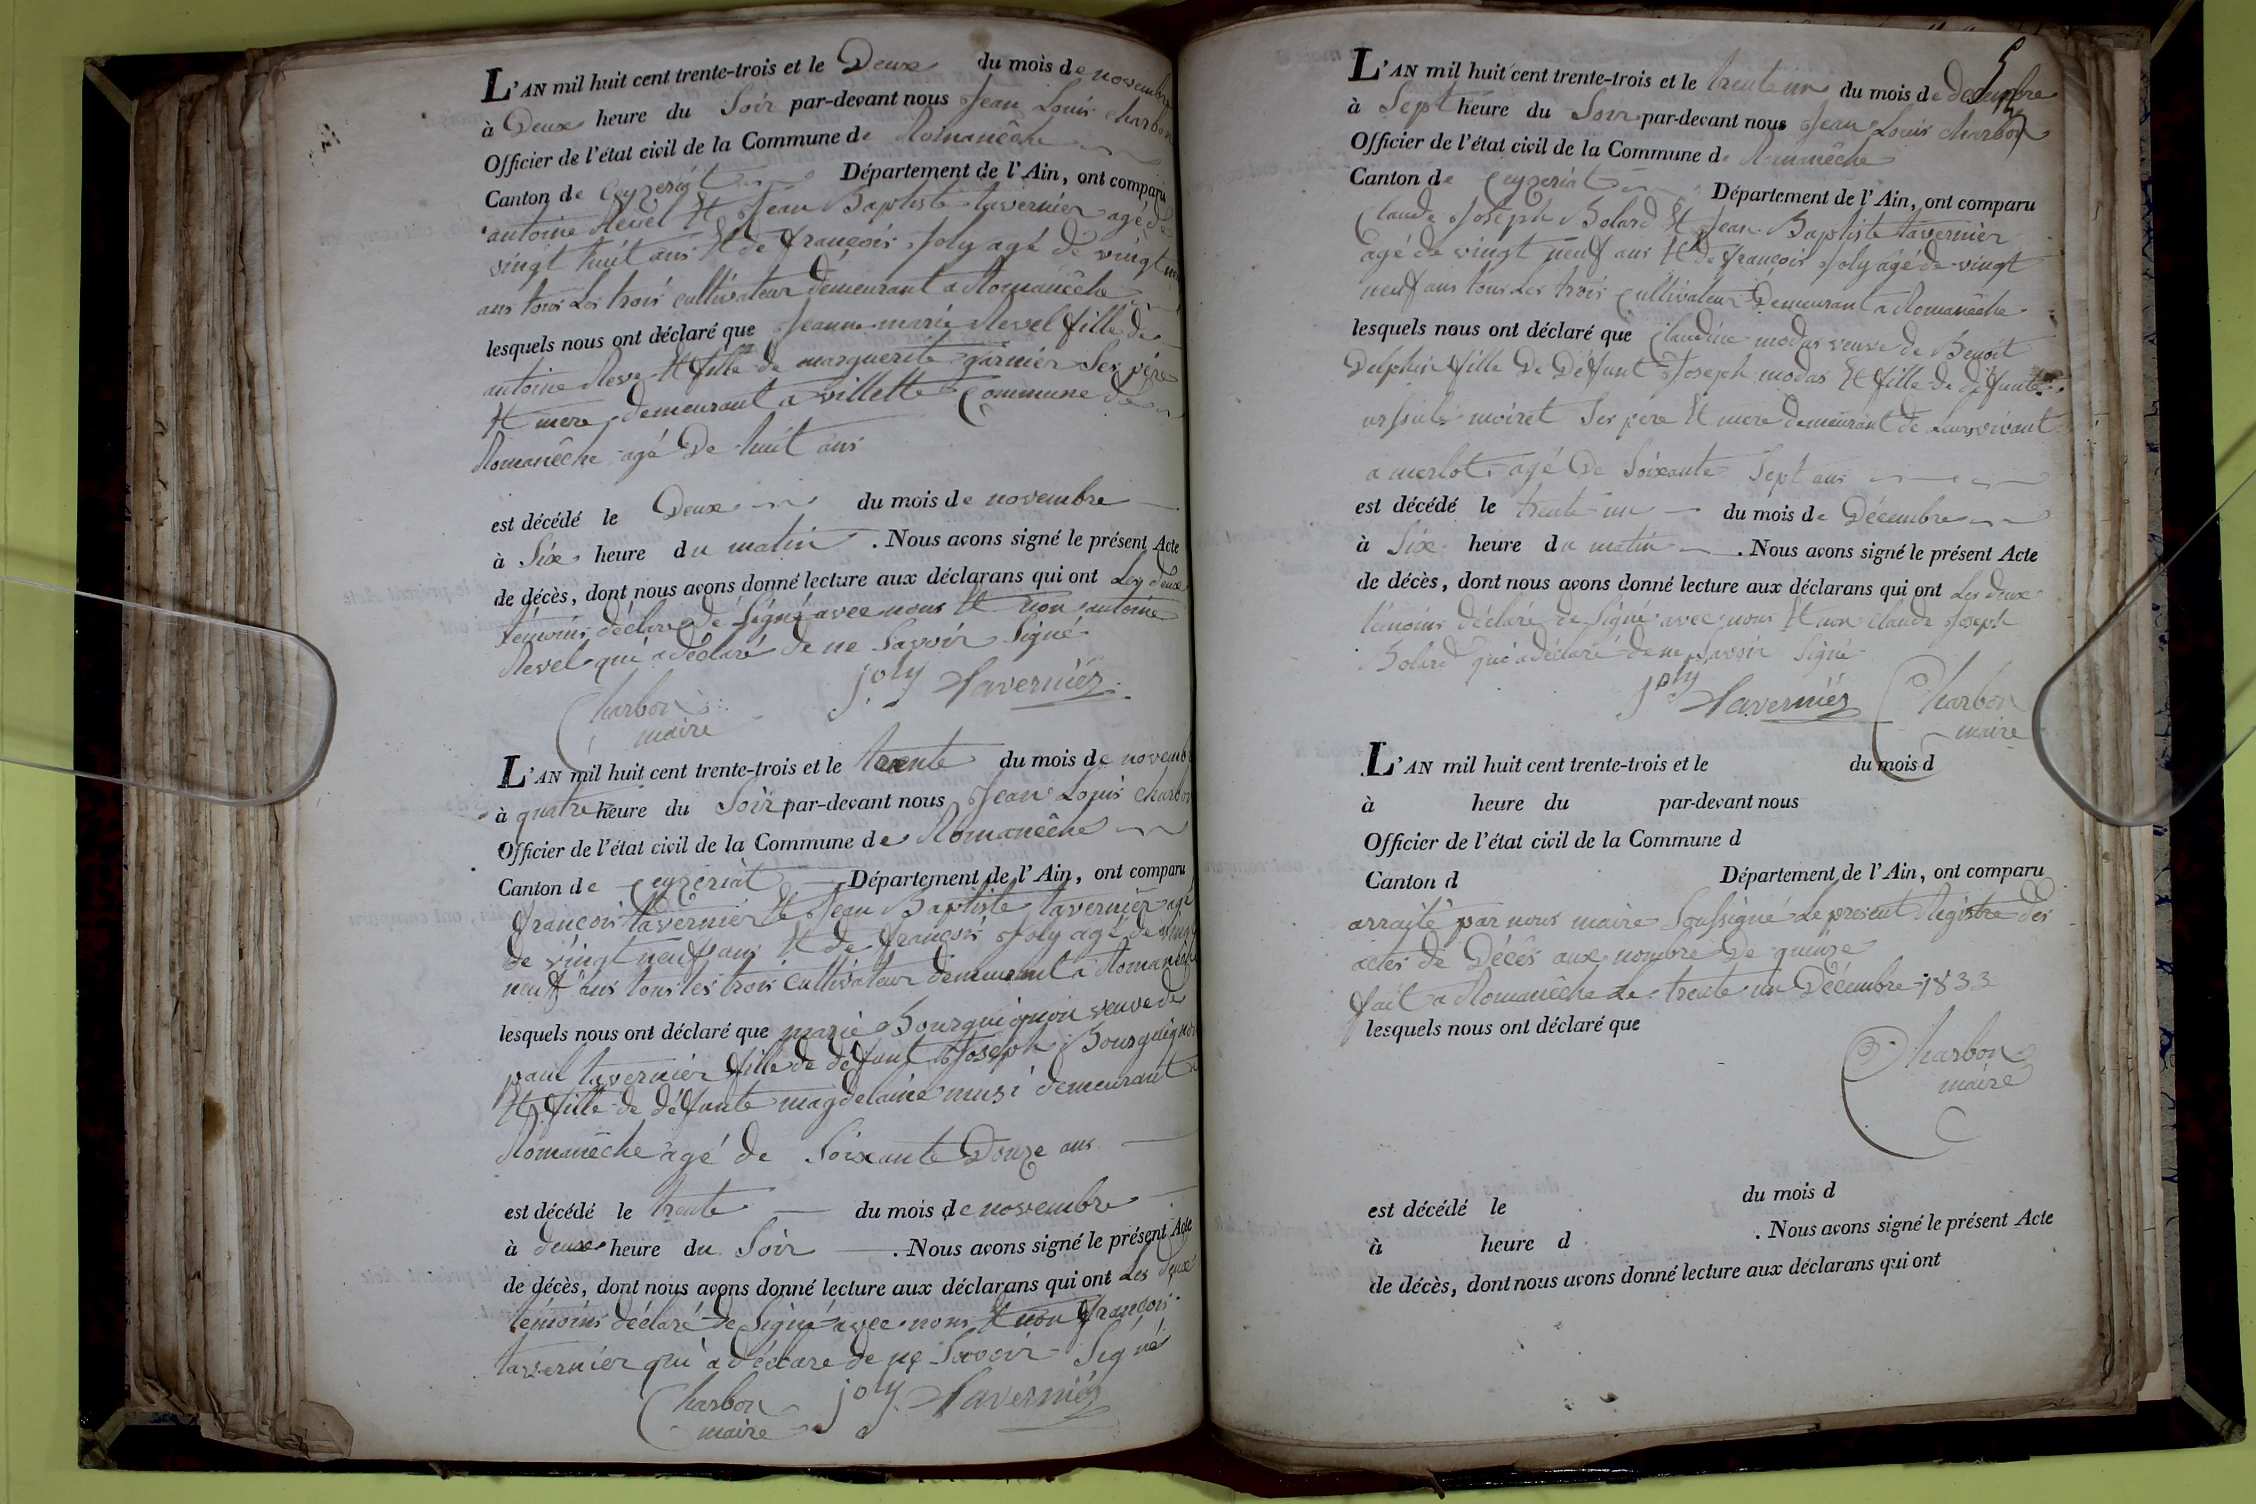 L'AN mil huit cent trente-trois et le Deux du mois de novembre
à Deux heure du Soir par-devant nous Jean Louis charbon
Officier de l'état civil de la Commune de Romanêche
Canton de Ceyzeriat Département de l'Ain, ont comparu
antoine Revel et Jean Baptiste tavernier agé de
vingt huit ans et de françois Joly agé de vingt
ans tous Les trois cultivateur demeurant a Romanêche
lesquels nous ont déclaré que Jeanne marie Revel fille de
antoine Reve et fille de marguerite garnier Ses père
et mere demeurant a villette Commune de
Romanêche agé De huit ans
est décédé le Deux du mois de novembre
à Six heure du matin . Nous avons signé le présent Acte
de décès, dont nous avons donné lecture aux déclarans qui ont Les deux
témoins déclaré de Signé avec nous et non antoine
Revel qui a déclaré de ne Savoir Signé
joly Tavernier
Charbon
maire
L'AN mil huit cent trente-trois et le trente du mois de novemb
à quatre heure du Soir par-devant nous Jean Louis charbon
Officier de l'état civil de la Commune de Romanêche
Canton de Ceyzeriat Département de l'Ain, ont comparu
françois tavernier et Jean Baptiste tavernier agé
de vingt neuf ans et de françois Joly agé de vingt
neuf ans tous les trois Cultivateur demeurant a Romanêche
lesquels nous ont déclaré que marie Bourguignon veuve de
paul tavernier fille de défunt Joseph Bourguignon
et fille de défunte magdelaine musi demeurant a
Romanêche agé de Soixante Douze ans
est décédé le trente du mois de novembre
à deux heure du Soir . Nous avons signé le présent Acte
de décès, dont nous avons donné lecture aux déclarans qui ont Les deux
témoins déclaré de Signé avec nous et non françois
tavernier qui a déclaré de ne Savoir Signé
Charbon joly Tavernier
maire
L'AN mil huit cent trente-trois et le trente un du mois de decembre
à Sept heure du Soir par-devant nous Jean Louis charbon
Officier de l'état civil de la Commune de Romanêche
Canton de Ceyzeriat Département de l'Ain, ont comparu
Claude Joseph Bolard et Jean Baptiste tavernier
agé de vingt neuf ans et de françois Joly agé de vingt
neuf ans tous Les trois Cultivateur Demeurant a Romanêche
lesquels nous ont déclaré que Claudine modas veuve de Benoit
Duphin fille De Défunt Joseph modas et fille de défunte
urssule moiret Ses pere et mere demeurant de Leurs vivant
a merlot agé De Soixante Sept ans
est décédé le trente un du mois de Décembre
à Six heure du matin . Nous avons signé le présent Acte
de décès, dont nous avons donné lecture aux déclarans qui ont Les deux
témoins déclaré de Signé avec nous et non claude Joseph
Bolard qui a déclaré de ne Savoir Signé
joly Tavernier Charbon
maire
L'AN mil huit cent trente-trois et le du mois d
à heure du par-devant nous
Officier de l'état civil de la Commune d
Canton d Département de l'Ain, ont comparu
arraité par nous maire Soussigné Le present Registre des
actes de Décès aux nombre De quinze
fait a Romanêche Le trente un Décembre 1833
lesquels nous ont déclaré que
Charbon
maire
est décédé le du mois d
à heure d . Nous avons signé le présent Acte
de décès, dont nous avons donné lecture aux déclarans qui ont